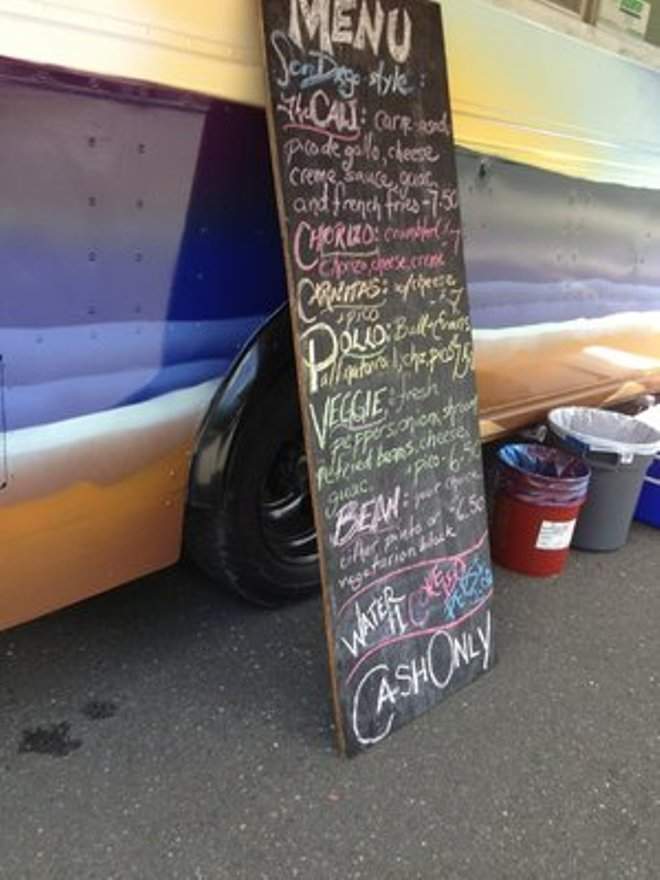 MENU
San Diego style:
The CALI: carne asada,
pico de gallo, cheese
creme sauce, guac
and french fries - 7.50
CHORIZO: -7
chorizo, cheese, creme
CARNITAS: w/cheese
pico -7
POLLO:
all natural, chz, pico 7.50
VEGGIE: fresh
peppers, onion, shroom
refried beans, cheese,
guac pico - 6.50
BEAN: your choice
either pinto or -6.50
vegetarian black
WATER $1
CASH ONLY